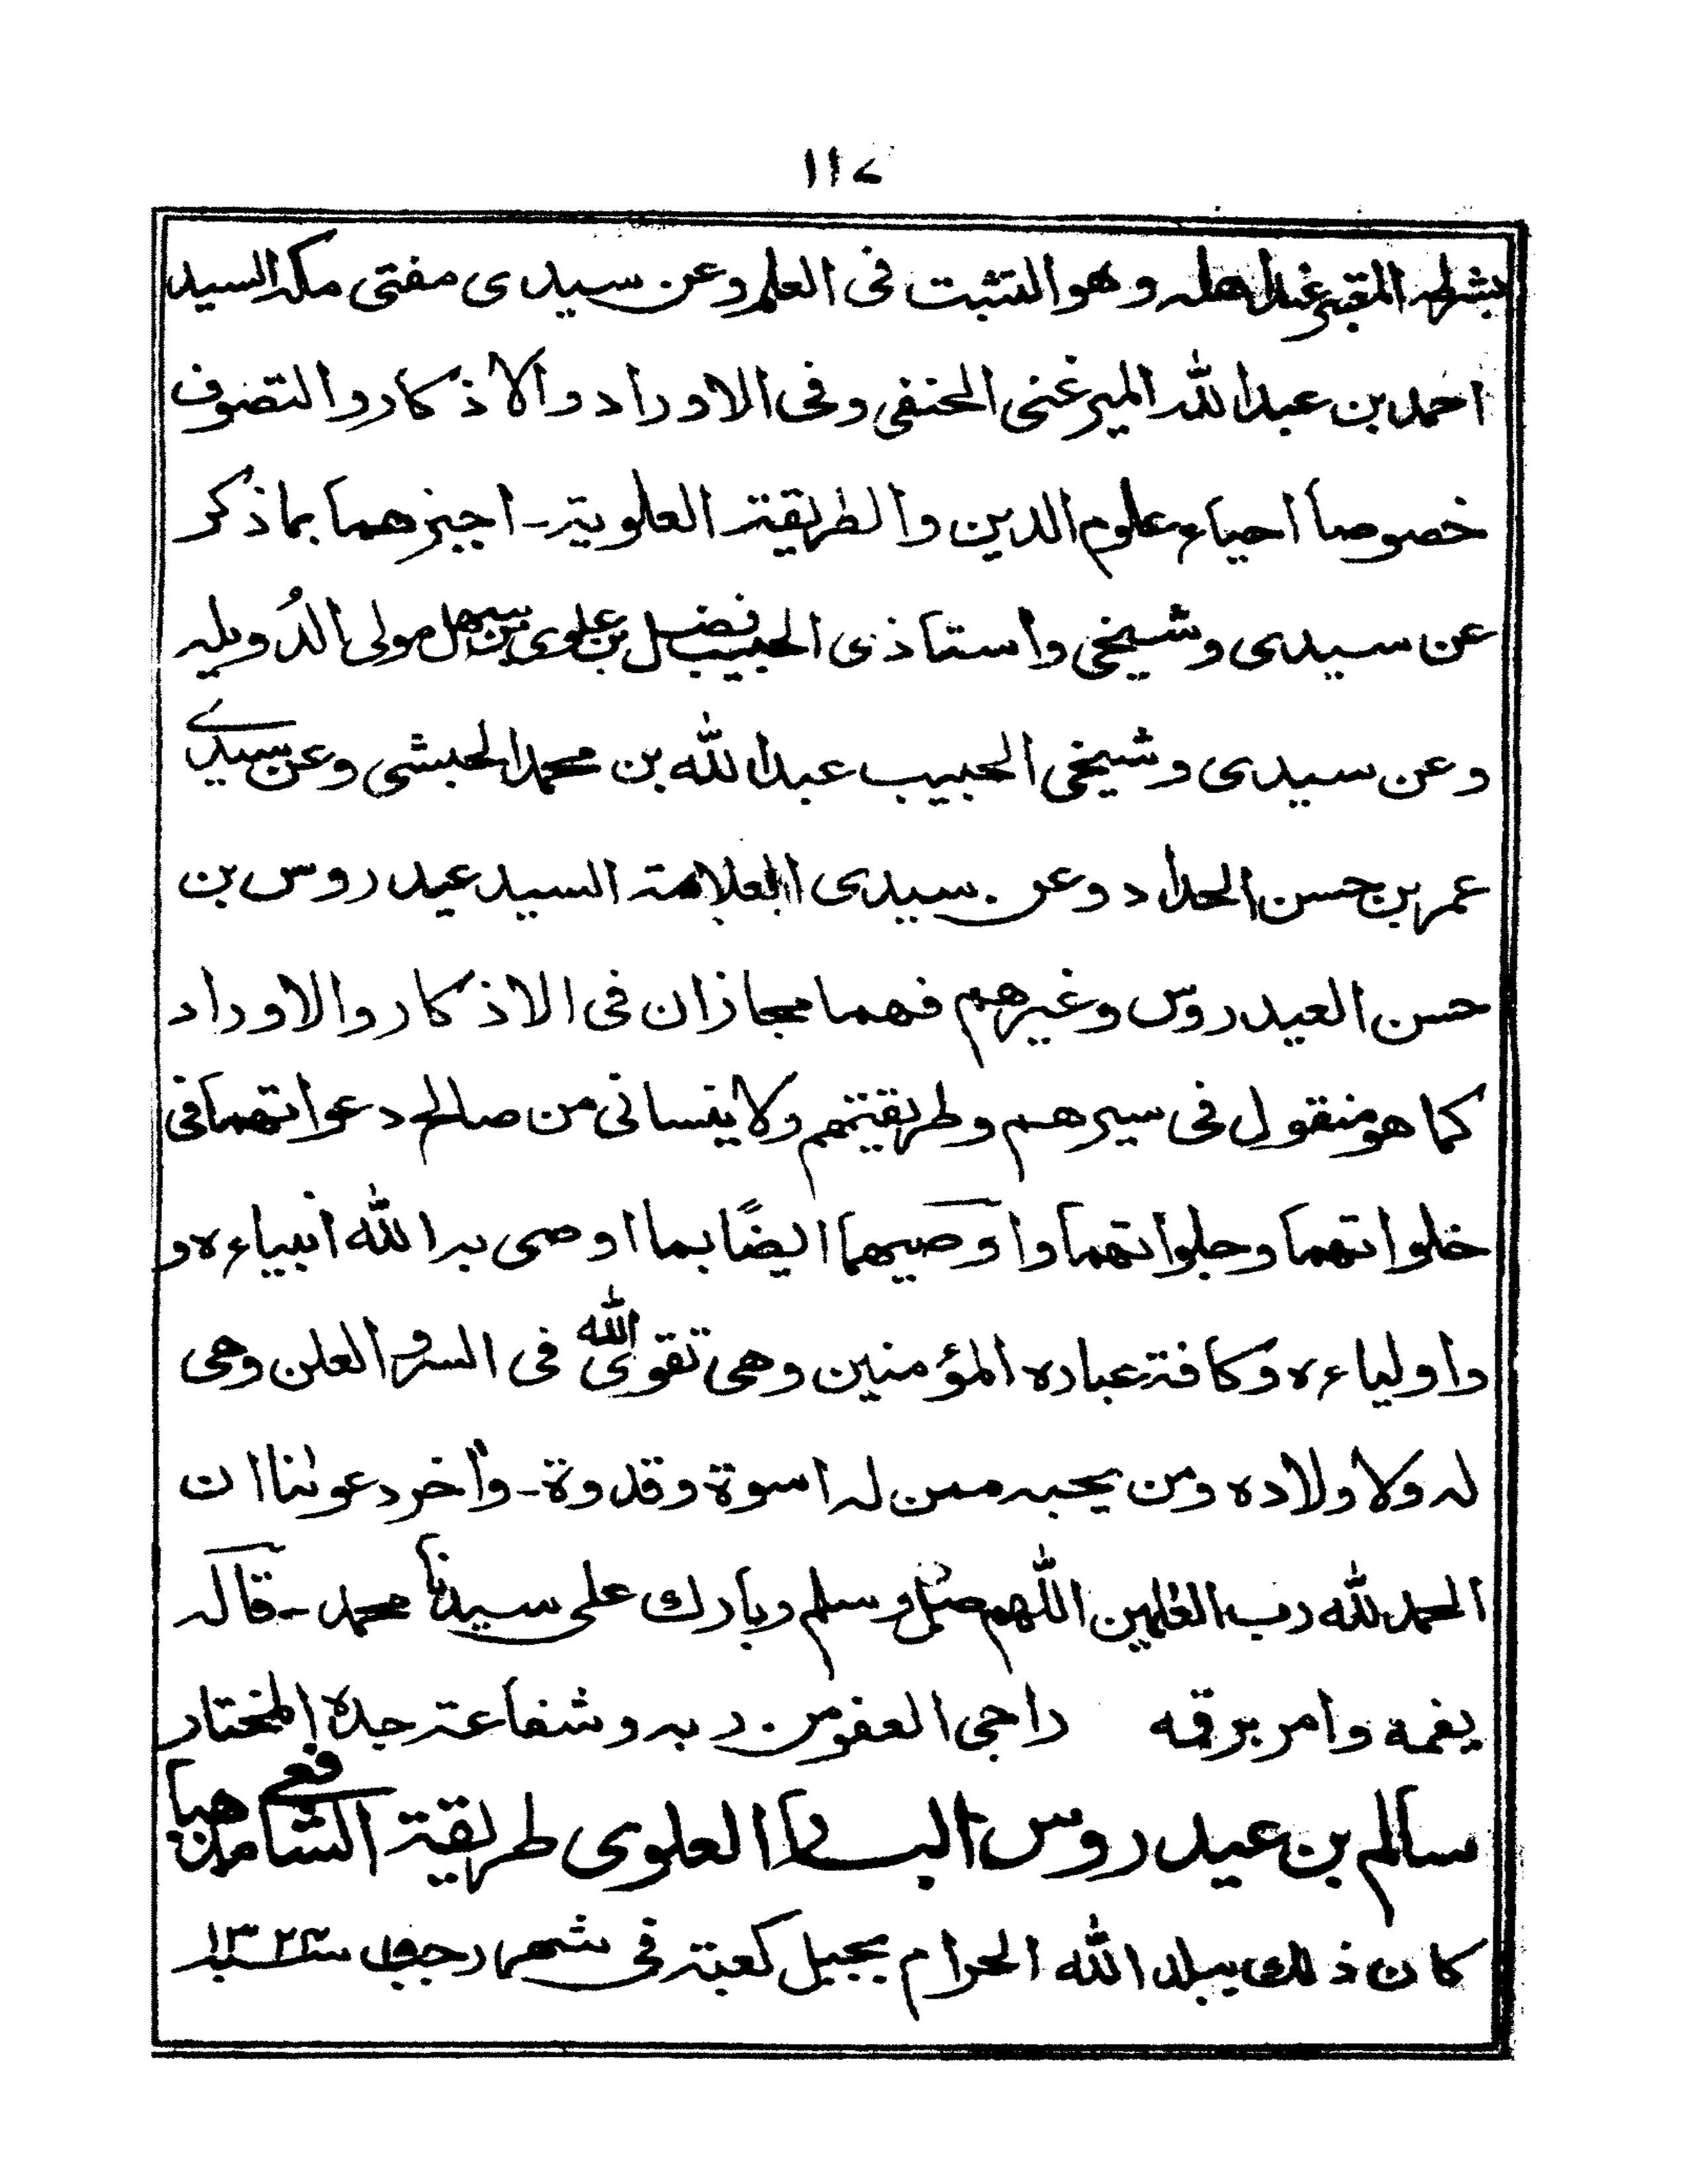 ١١٧
بشرطه المعتبر عند اهله وهو التثبت فى العلم وعن سيدى مفتى مكه السيد
احمد بن عبد الله الميرغنى الحنفى وفى الاوراد والاذكار والتصوف
خصوصاً احياء علوم الدين والطريقة العلوية - اجيزهما بما ذكر
عن سيدى وشيخى واستاذى الحبيب فضل بن علوى بن سهل مولى الدُويله
وعن سيدى وشيخى الحبيب عبد الله بن محمد الحبشى وعن سيدى
عمر بن حسن الحداد وعن سيدى العلامة السيد عيدروس بن
حسن العيدروس وغيرهم فهما مجازان فى الاذكار والاوراد
كما هو منقول فى سيرهم وطريقتهم ولا ينسانى من صالح دعواتهما فى
خلواتهما وجلواتهما واوصيهما ايضًا بما اوصى به الله انبياءه و
واولياءه وكافة عباده المؤمنين وهى تقوى الله فى السر والعلن وهى
له ولاولاده ومن يحبه ممن له اسوة وقدوة - وآخر دعوٰنا ان
الحمد لله رب العٰلمين اللهم صل وسلم وبارك على سيدنا محمد - قاله
بفمه وامر برقمه راجى العفو من ربه وشفاعة جده المختار
سالم بن عيدروس البار العلوى طريقة الشافعى مذهبا
كان ذلك ببلد الله الحرام بجبل كعبة فى شهر رجب سنة ١٣٢٤